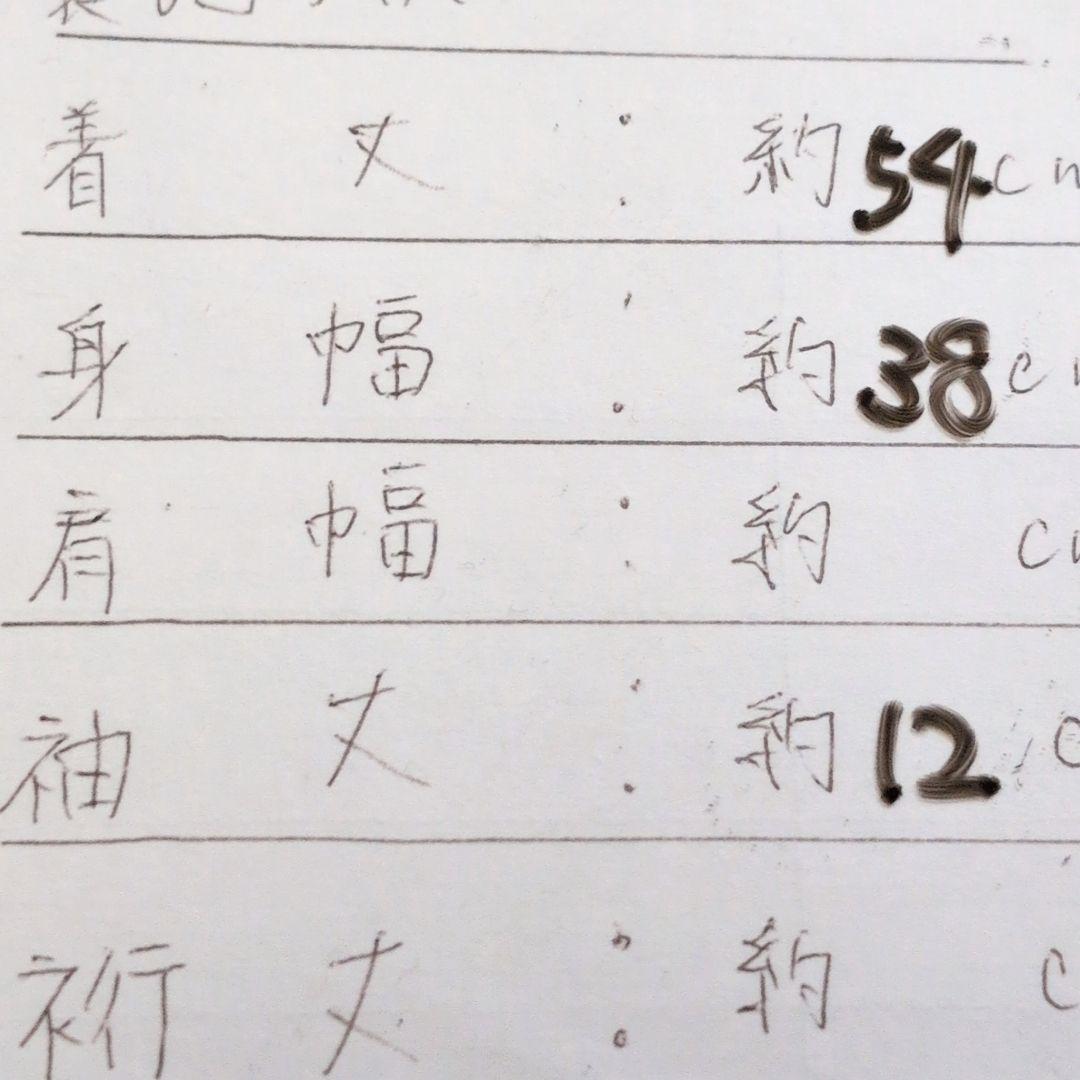 着丈：約54cm
身幅：約38cm
肩幅：約 cm
袖丈：約12 c
裄丈：約 c